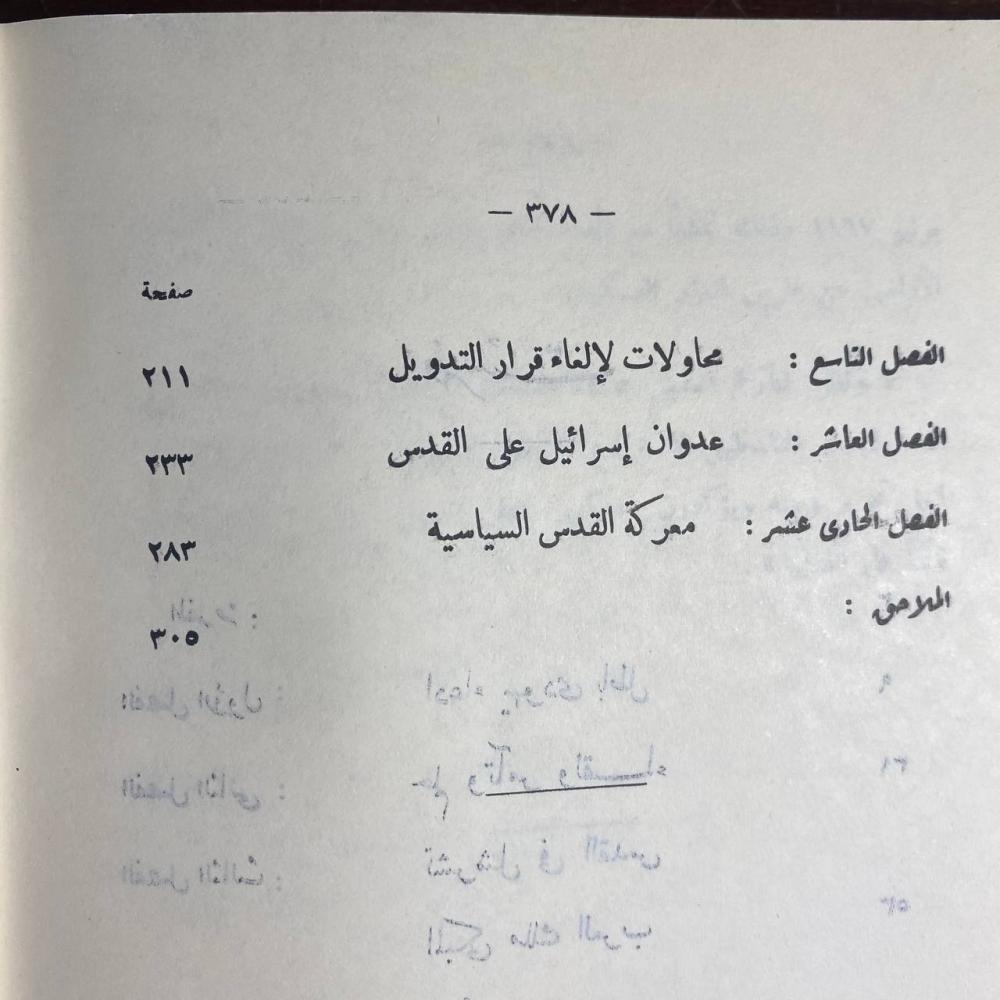 — ٣٧٨ —
صفحة
الفصل التاسع : محاولات لإلغاء قرار التدويل ٢١١
الفصل العاشر : عدوان إسرائيل على القدس ٢٣٣
الفصل الحادى عشر : معركة القدس السياسية ٢٨٣
الملاحق : ٣٠٥